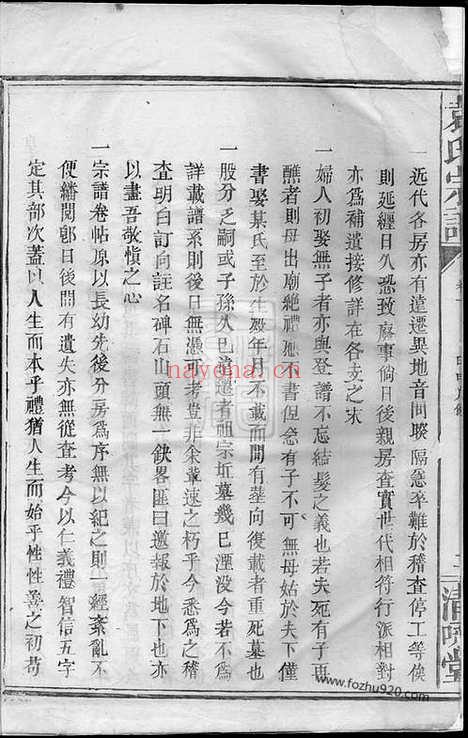 袁氏宗譜
卷一
清𠻸堂
一近代各房亦有遠遷異地音問暌隔急卒難於稽查停工等俟
則延纏日久恐致廢事倘日後親房查實世代相符行派相對
亦爲補遺接修詳在各支之末
一婦人初娶無子者亦與登譜不忘結髮之義也若夫死有子再
醮者則母出廟絶禮應不書但念有子不可無母姑於夫下僅
書娶某氏至於生殁年月不載而間有塟向後載者重死墓也
一股分乏嗣或子孫久已遠遷者祖宗坵墓幾已湮没今若不爲
詳載譜系則後日無憑可考豈非余輩速之朽乎今悉爲之稽
查明白訂向註名碑石山頭無一鈌畧匪曰邀報於地下也亦
以盡吾敬愼之心
一宗譜卷帖原以長幼先後分房爲序無以紀之則一經紊亂不
便繙閱卽日後間有遺失亦無從查考今以仁義禮智信五字
定其部次蓋以人生而本乎禮猶人生而始乎性性善之初苟
nayona.cn
www.fozhu920.com